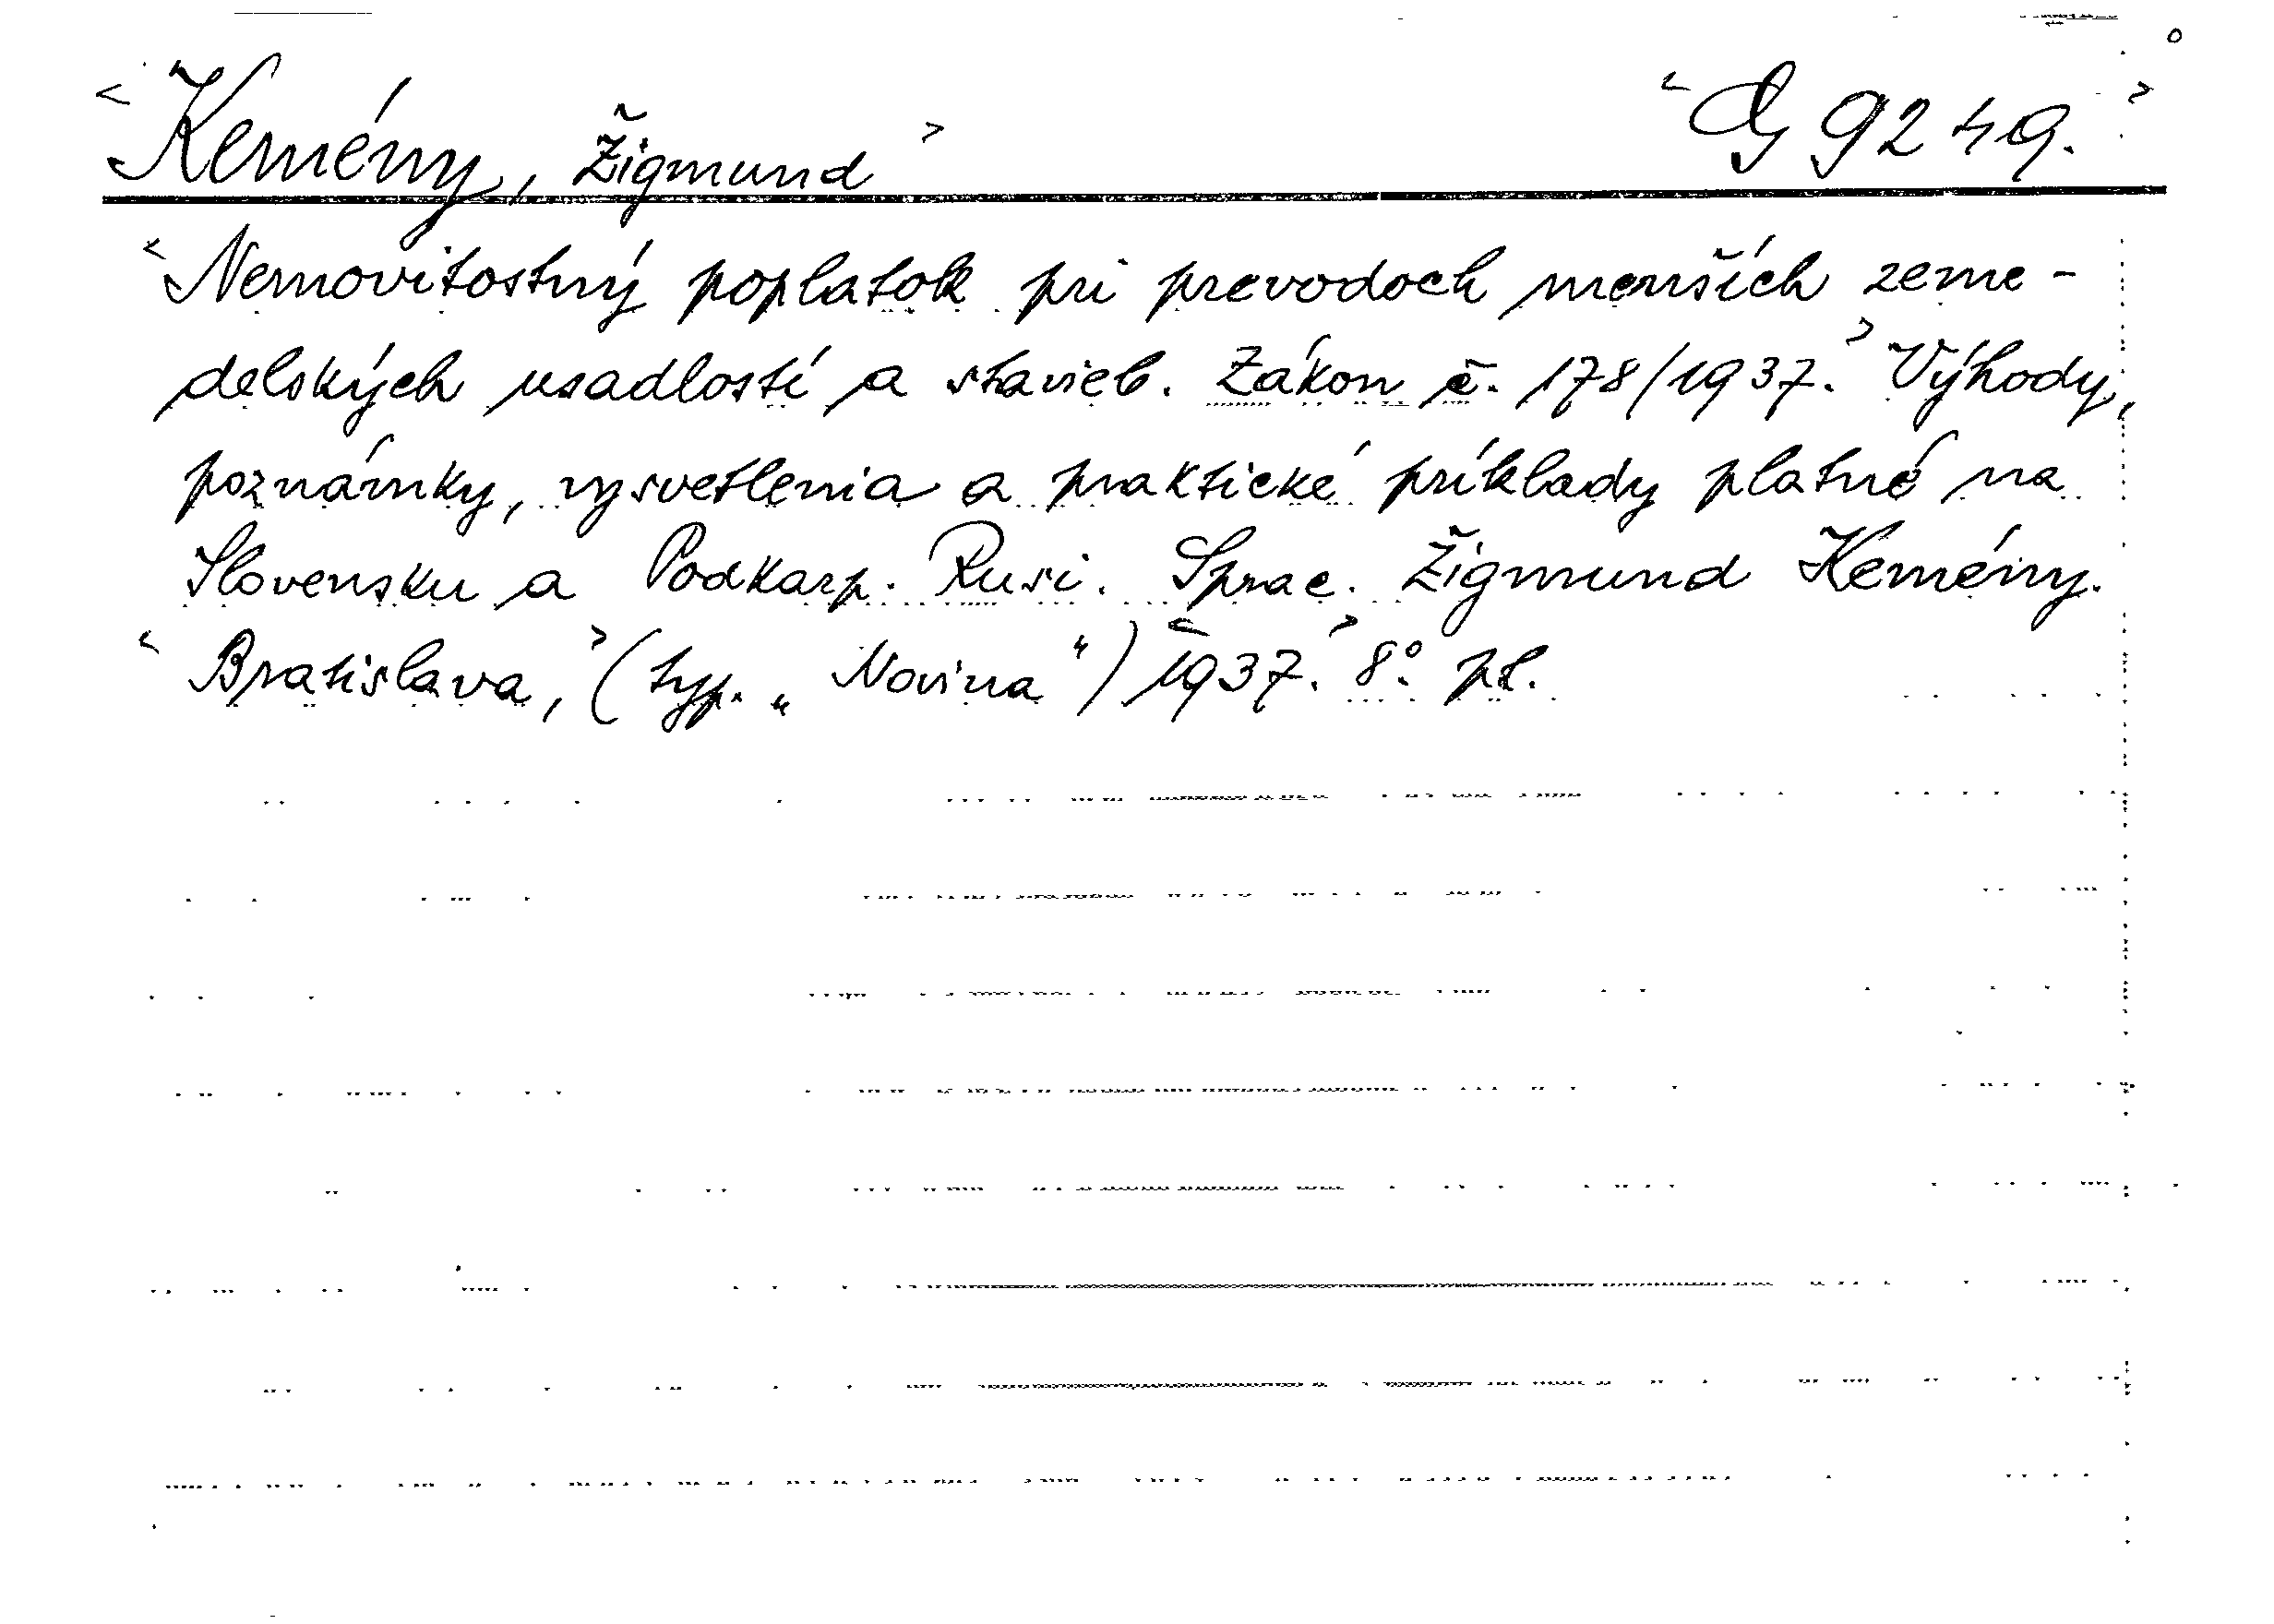 <Kemény, Žigmund> <G 9249.>
<Nemovitostný poplatok pri prevodoch menších zeme-
delských usadlostí a stavieb. Zákon č. 178/1937.> Výhody,
poznámky, vysvetlenia a praktické príklady platné na
Slovensku a Podkarp. Rusi. Sprac. Žigmund Kemény.
<Bratislava,> (typ. „Novina“) <1937.> 8°. pl.